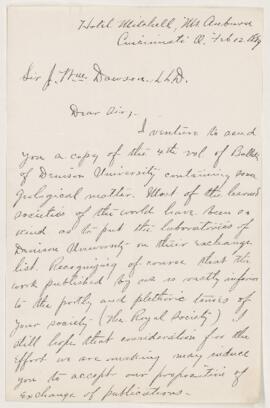 Hotel Mitchell, Mt. Auburn
Cincinnati O. Feb 12
Sir J. Wm. Dawson, LL.D.
Dear Sir,
I venture to send
you a copy of the 4th vol of Bulletin
of Denison University containing some
geological matter. Most of the learned
societies of the world have been so
kind as to put the laboratories of
Denison University on their exchange
list. Recognizing of course that the
work published by us is vastly inferior
to the portly and plethoric tomes of
your society (the Royal Society) I
still hope that consideration for the
effort we are making may induce
you to accept our proposition of
exchange of publications.